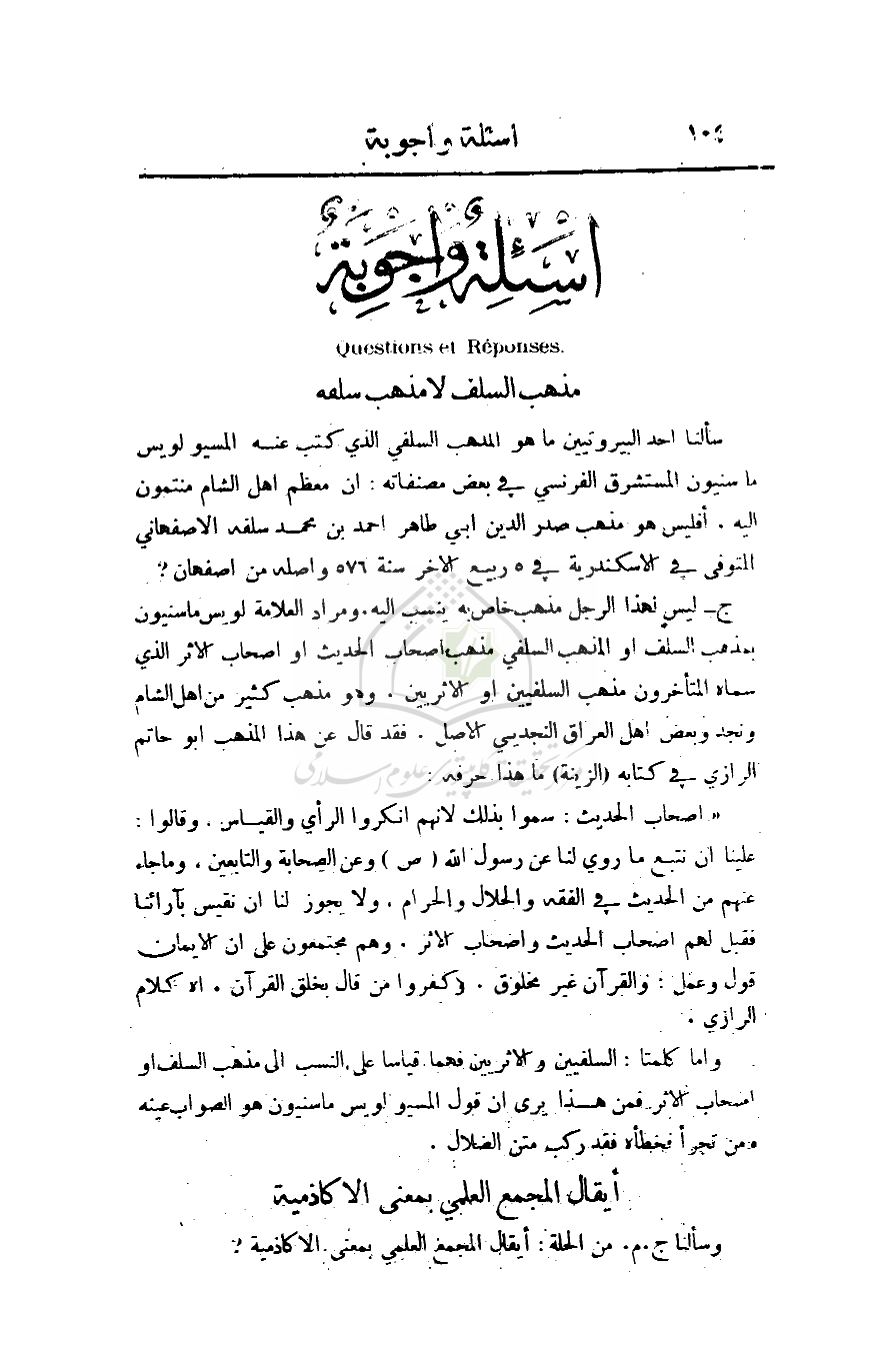 ١٠٤ أسئلة وأجوبة
أَسْئِلَةٌ وَأَجْوِبَةٌ
Questions et Réponses.
مذهب السلف لا مذهب سلفه
سألنا احد البيروتيين ما هو المذهب السلفي الذي كتب عنه المسيو لويس
ماسنيون المستشرق الفرنسي في بعض مصنفاته : ان معظم اهل الشام منتمون
اليه . أفليس هو مذهب صدر الدين ابي طاهر احمد بن محمد سلفه الاصفهاني
المتوفى في الاسكندرية في ٥ ربيع الاخر سنة ٥٧٦ واصله من اصفهان ؟
ج — ليس لهذا الرجل مذهب خاص به ينسب اليه . ومراد العلامة لويس ماسنيون
بمذهب السلف او المذهب السلفي مذهب اصحاب الحديث او اصحاب الاثر الذي
سماه المتأخرون مذهب السلفيين او الاثريين . وهو مذهب كثير من اهل الشام
ونجد وبعض اهل العراق النجديي الاصل . فقد قال عن هذا المذهب ابو حاتم
الرازي في كتابه (الزينة) ما هذا حرفه :
« اصحاب الحديث : سموا بذلك لانهم انكروا الرأي والقياس . وقالوا :
علينا ان نتبع ما روي لنا عن رسول الله ( ص ) وعن الصحابة والتابعين ، وماجاء
عنهم من الحديث في الفقه والحلال والحرام . ولا يجوز لنا ان نقيس بآرائنا
فقيل لهم اصحاب الحديث واصحاب الاثر . وهم مجتمعون على ان الايمان
قول وعمل : والقرآن غير مخلوق . وكفروا من قال بخلق القرآن . اه كلام
الرازي .
واما كلمتا : السلفيين والاثريين فهما قياسا على النسب الى مذهب السلف او
اصحاب الاثر فمن هذا يرى ان قول المسيو لويس ماسنيون هو الصواب عينه
ومن تجرأ فخطأه فقد ركب متن الضلال .
أيقال المجمع العلمي بمعنى الاكاذمية
وسألنا ج . م . من الحلة : أيقال المجمع العلمي بمعنى الاكاذمية ؟
مركز تحقيقات كامپيوتری علوم اسلامی